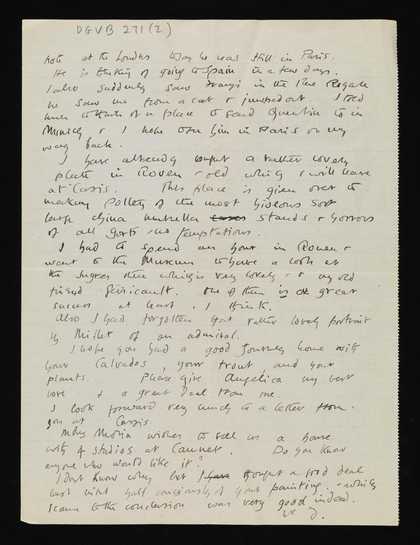 DGVB 271(2)
note at the London way he was still in Paris.
He is thinking of going to Spain in a few days.
I also suddenly saw in the Rue Royale
he saw me from a car & jumped out I told
him to think of a place to send Quentin to in
Munich & I hope to see him in Paris on my
way back.
I have already bought a rather lovely
plate in Rouen - old which I will leave
at Cassis. This place is given over to
making Pottery of the most hideous sort
large china umbrella stands & horrors
of all sorts no temptations.
I had to spend an hour in Rouen &
went to the Museum to have a look at
the Ingres there which is very lovely - & my old
friend Géricault. One of them is a great
success at least, I think.
Also I had forgotten that rather lovely portrait
by Millet of an admiral.
I hope you had a good journey home with
your Calvados, your trout, and your
plants. Please give Angelica my very
love & a great deal from me.
I look forward very much to a letter from
you at Cassis
Miss wishes to sell us a house
with 4 studios at Do you know
anyone who would like it?
I don't know why but I thought a good deal
last night half consciously of your painting - which
I came to the conclusion was very good indeed.
yr D.